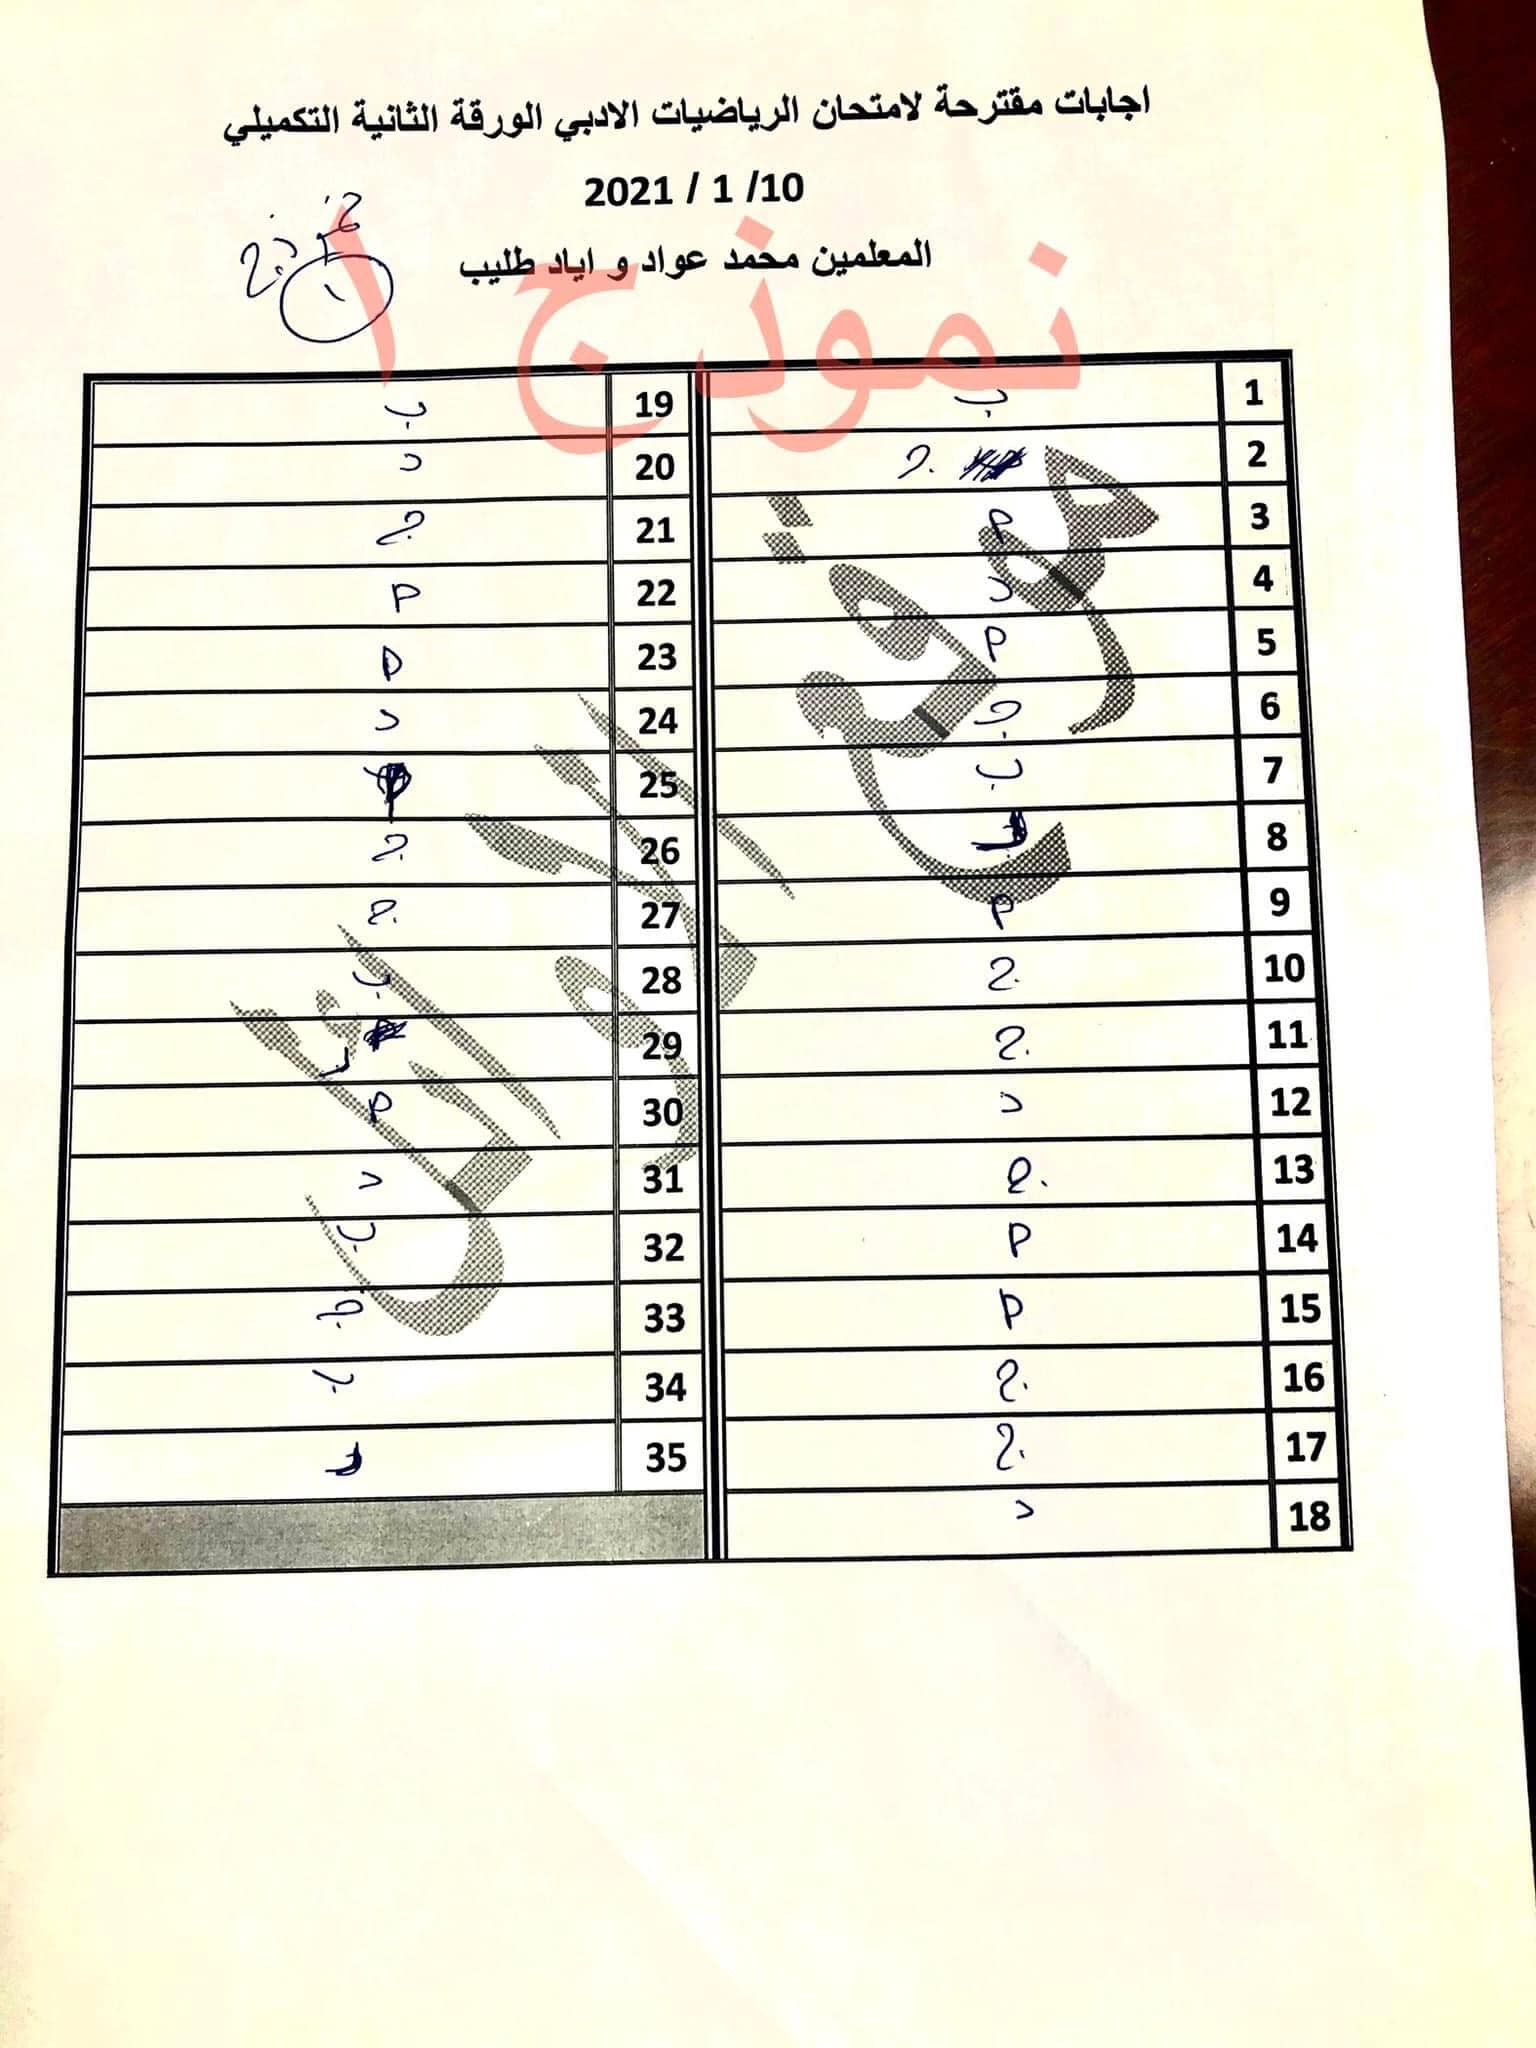 اجابات مقترحة لامتحان الرياضيات الادبي الورقة الثانية التكميلي
2021 / 1 /10
المعلمين محمد عواد و اياد طليب
نموذج
1
نموذج ا
1 ب
2 ج
3 م
4 د
5 م
6 ج
7 ب
8
9 م
10 ج
11 ج
12 د
13 ج
14 م
15 م
16 ج
17 ج
18 د
19 ب
20 د
21 ج
22 م
23 م
24 د
25
26 ج
27 ج
28 ب
29
30 م
31 د
32 ب
33 ج
34 ب
35